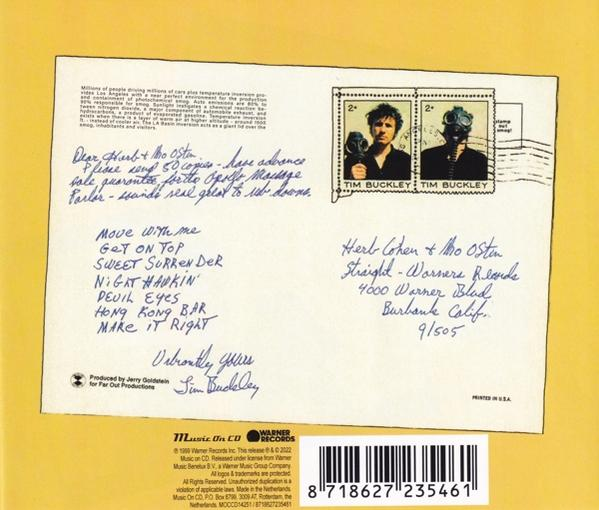 Millions of people driving millions of cars plus temperature inversion pro-
vides Los Angeles with a near perfect environment for the production
and containment of photochemical smog. Auto emissions are 80% to
90% responsible for smog. Sunlight instigates a chemical reaction be-
tween nitrogen dioxide, a major component of automobile exhaust, and
hydrocarbons, a product of evaporated gasoline. Temperature inversion
exists when there is a layer of warm air at higher altitude - around 1500
ft. - instead of cooler air. The LA Basin inversion acts as a giant lid over the
smog, inhabitants and visitors.
2¢
2¢
TIM BUCKLEY
TIM BUCKLEY
stamp
out
smog!
Dear Herb & Mo Osten
Please send 50 copies - have advance
sale guarantee for the Apollo Massage
Parlor - sounds real great to rub downs.
MOVE WITH ME
GET ON TOP
SWEET SURRENDER
NIGHT HAWKIN'
DEVIL EYES
HONG KONG BAR
MAKE IT RIGHT
Herb Cohen & Mo Osten
Straight - Warners Records
4000 Warner Blvd
Burbank Calif.
91505
Vibrantly Yours
Tim Buckley
Produced by Jerry Goldstein
for Far Out Productions
PRINTED IN U.S.A.
Music On CD
WARNER
RECORDS
℗ 1999 Warner Records Inc. This release ℗ & © 2022
Music on CD. Released under license from Warner
Music Benelux B.V., a Warner Music Group Company.
All logos & trademarks are protected.
All Rights Reserved. Unauthorized duplication is a
violation of applicable laws. Made in the Netherlands.
Music On CD, P.O. Box 8799, 3009 AT, Rotterdam, the
Netherlands. MOCCD14251 / 8718627235461
8 718627 235461